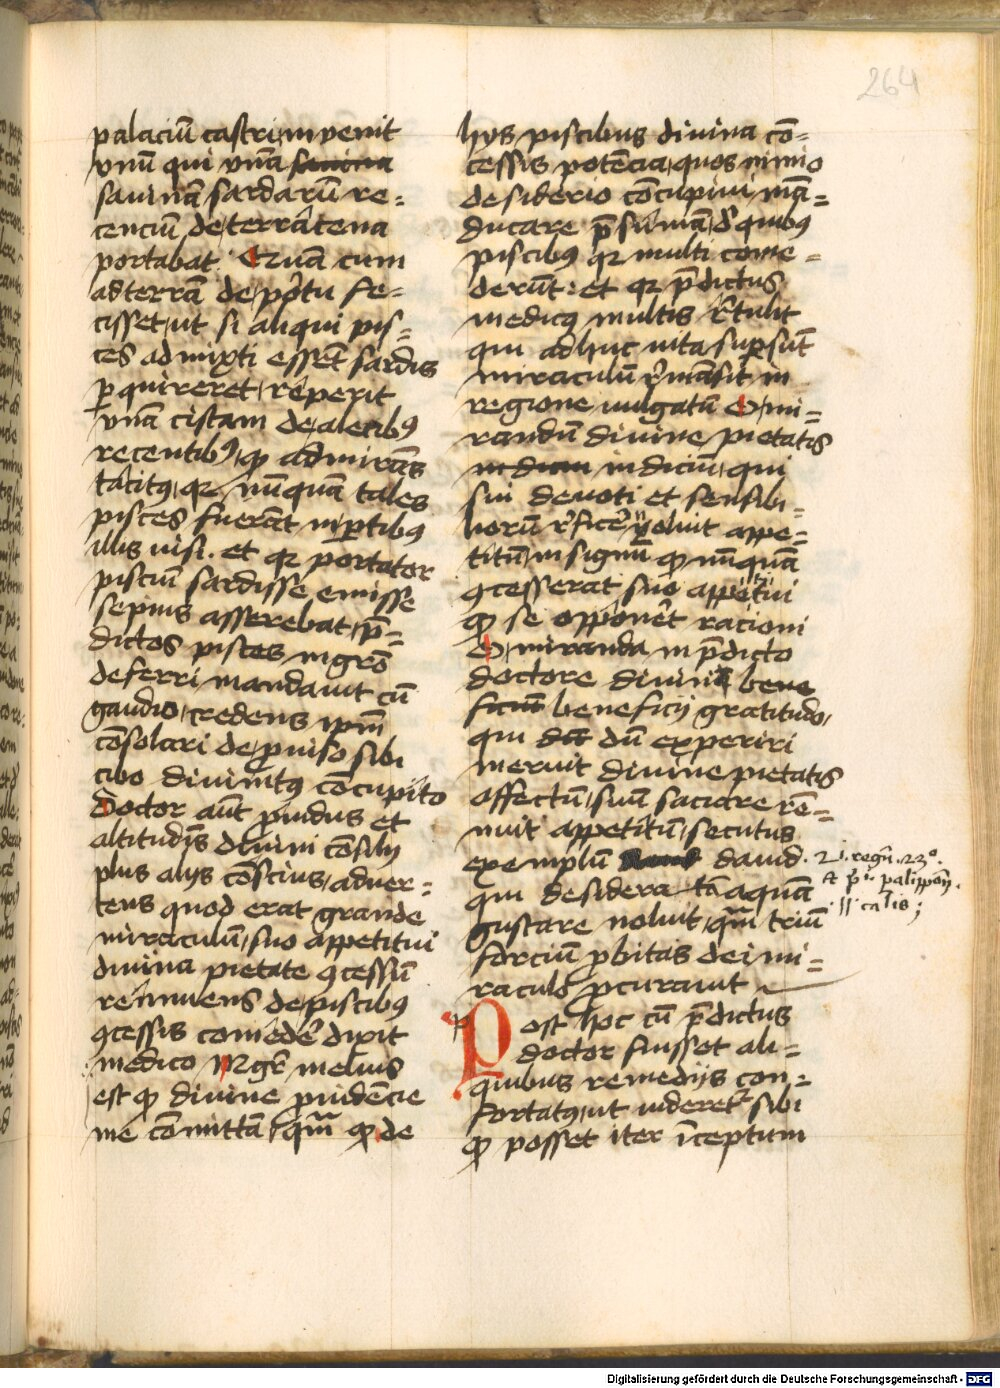 264
palaciū castri, invenit
unū qui unā
saumā sardarū re=
cenciū de terratena
portabat. Quā cum
ad terrā de portu fe=
cisset, ut si aliqui pis=
ces admixti essēt sardis
perquireret, reperit
unā cistam de alecibꝫ
recentibꝫ, qꝫ admirās
tacitꝫ, qꝛ nūquam tales
pisces fuerāt in p̄tibꝫ
illis visi. et qꝛ portator
pisciū sardisse emisse
sepius asserebat, p̄=
dictos pisces in gro
deferri mandavit cū
gaudio, credens ip̄m
cōsolari de p̄viso sibi
cibo divinitꝫ cōcupito
doctor aūt p̄vidus et
altitudinis divini cōsilij
plus alijs cōscius, adver=
tens quod erat grande
miraculū, suo appetitui
divina pietate ꝯcessū
rennuens de piscibus
ꝯcessis comedere dixit
medico Mgr̄ melius
est qꝫ divine p̄videncie
me cōmittā, qm̄ qꝫ de
hys piscibus divina cō=
cessis potēcia, quos nimio
desiderio cōcupivi, mā=
ducare p̄sumā, de quibꝫ
piscibꝫ qꝛ multi come=
derūt: et qꝛ p̄dictus
medicꝫ multis retulit
qui adhuc vita sup̄sūt
miraculū remāsit in
regione vulgatū O, mi=
randū divine pietatis
indicium indiciū, qui
sui devoti et sensibi=
liorū reficere voluit appe=
titū, in signū qꝫ nūquā
ꝯcesserat suo appetitui
qꝫ se opponeret racioni
O, miranda in p̄dicto
doctore divini bene
ficium beneficij gratitudo,
qui dū experiri
meruit divine pietatis
affectū, suū saciare ren=
nuit appetitū, secutus
exemplū david.
qui desideratā aquam
gustare noluit, quā triū
forciū p̄bitas dei mi=
raculo p̄curavit
2. regū. 23°.
et pͦ palippon.
11 calis;
Post hoc cū p̄dictus
doctor fuisset ali=
quibus remedijs con=
fortatꝫ, ut videretꝛ sibi
qꝫ posset iter īceptum
Digitalisierung gefördert durch die Deutsche Forschungsgemeinschaft - DFG